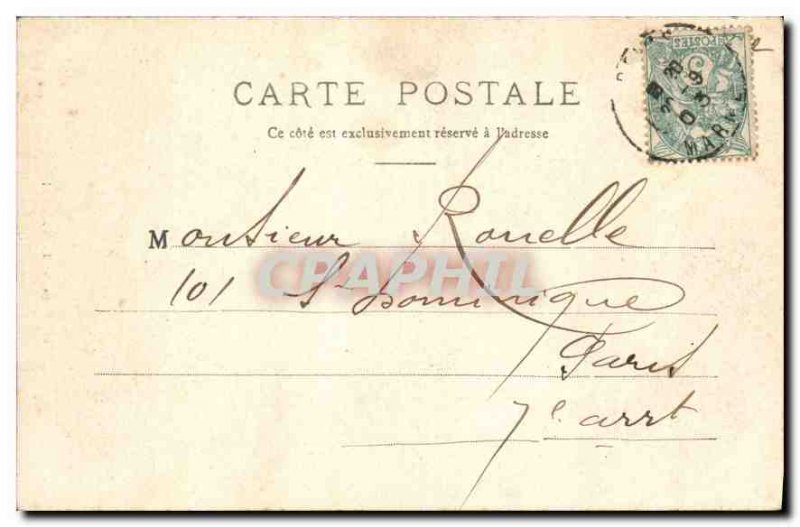 CARTE POSTALE
Ce côté est exclusivement réservé à l'adresse
Monsieur Rouelle
101 St Dominique
Paris
7e arrt
CPAPHIL
POSTES
5
20
-9
03
MARNE